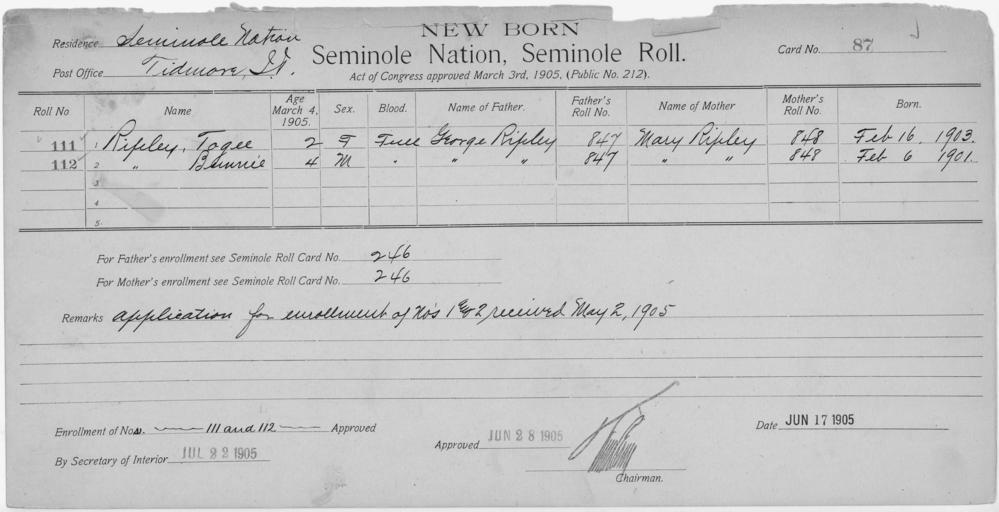 NEW BORN
Seminole Nation, Seminole Roll.
Act of Congress approved March 3rd, 1905, (Public No. 212).
Residence Seminole Nation
Post Office Tidmore, I.T.
Card No. 87
Roll No Name Age March 4, 1905. Sex. Blood. Name of Father. Father's Roll No. Name of Mother Mother's Roll No. Born.
111 1 Ripley, Togee 2 F Full George Ripley 847 Mary Ripley 848 Feb 16, 1903.
112 2 " Bunnie 4 M " " " 847 " " 848 Feb 6 1901.
3
4
5.
For Father's enrollment see Seminole Roll Card No. 246
For Mother's enrollment see Seminole Roll Card No. 246
Remarks application for enrollment of No's 1 & 2 received May 2, 1905
Enrollment of Nos. 111 and 112 Approved
By Secretary of Interior JUL 22 1905
Approved JUN 28 1905
Chairman.
Date JUN 17 1905